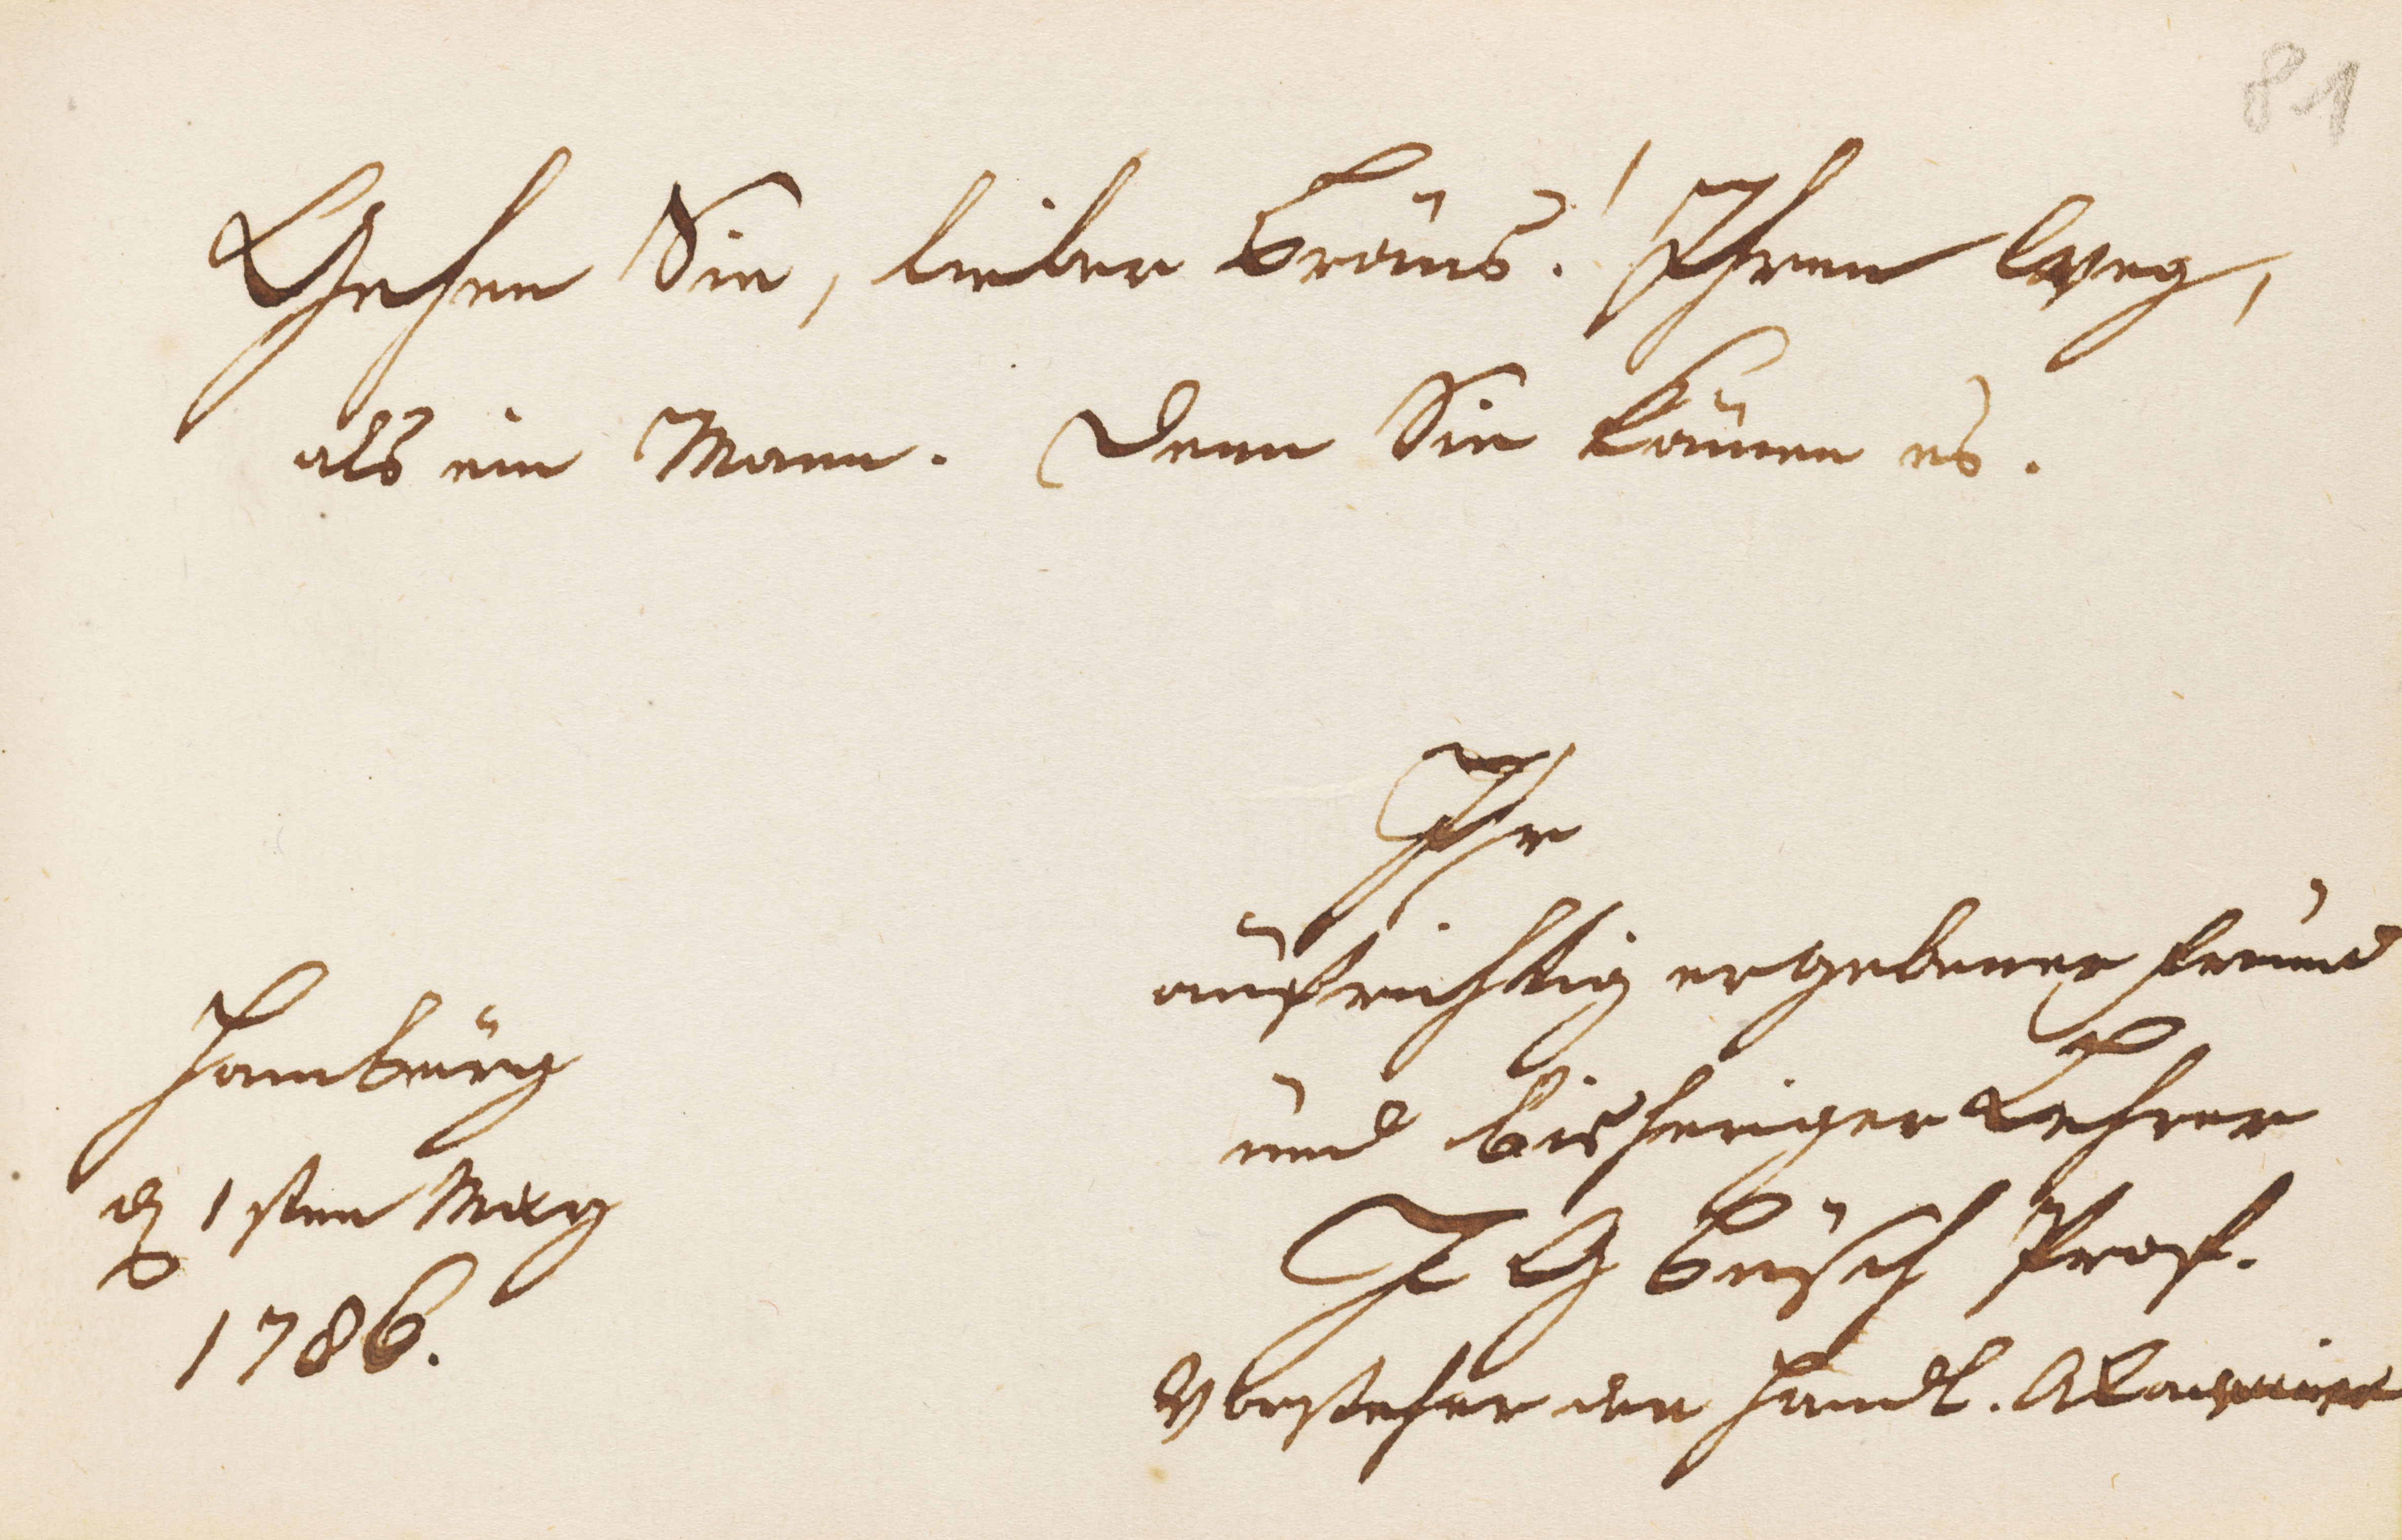 81
Gehen Sie, lieber Kraus! Ihren Weg,
als ein Mann. Denn Sie können es.
Ihr
aufrichtig ergebener Freund
und bisheriger Lehrer
J G Büsch Prof.
Vorsteher der Handl. Akademie
Hamburg
d 1sten May
1786.